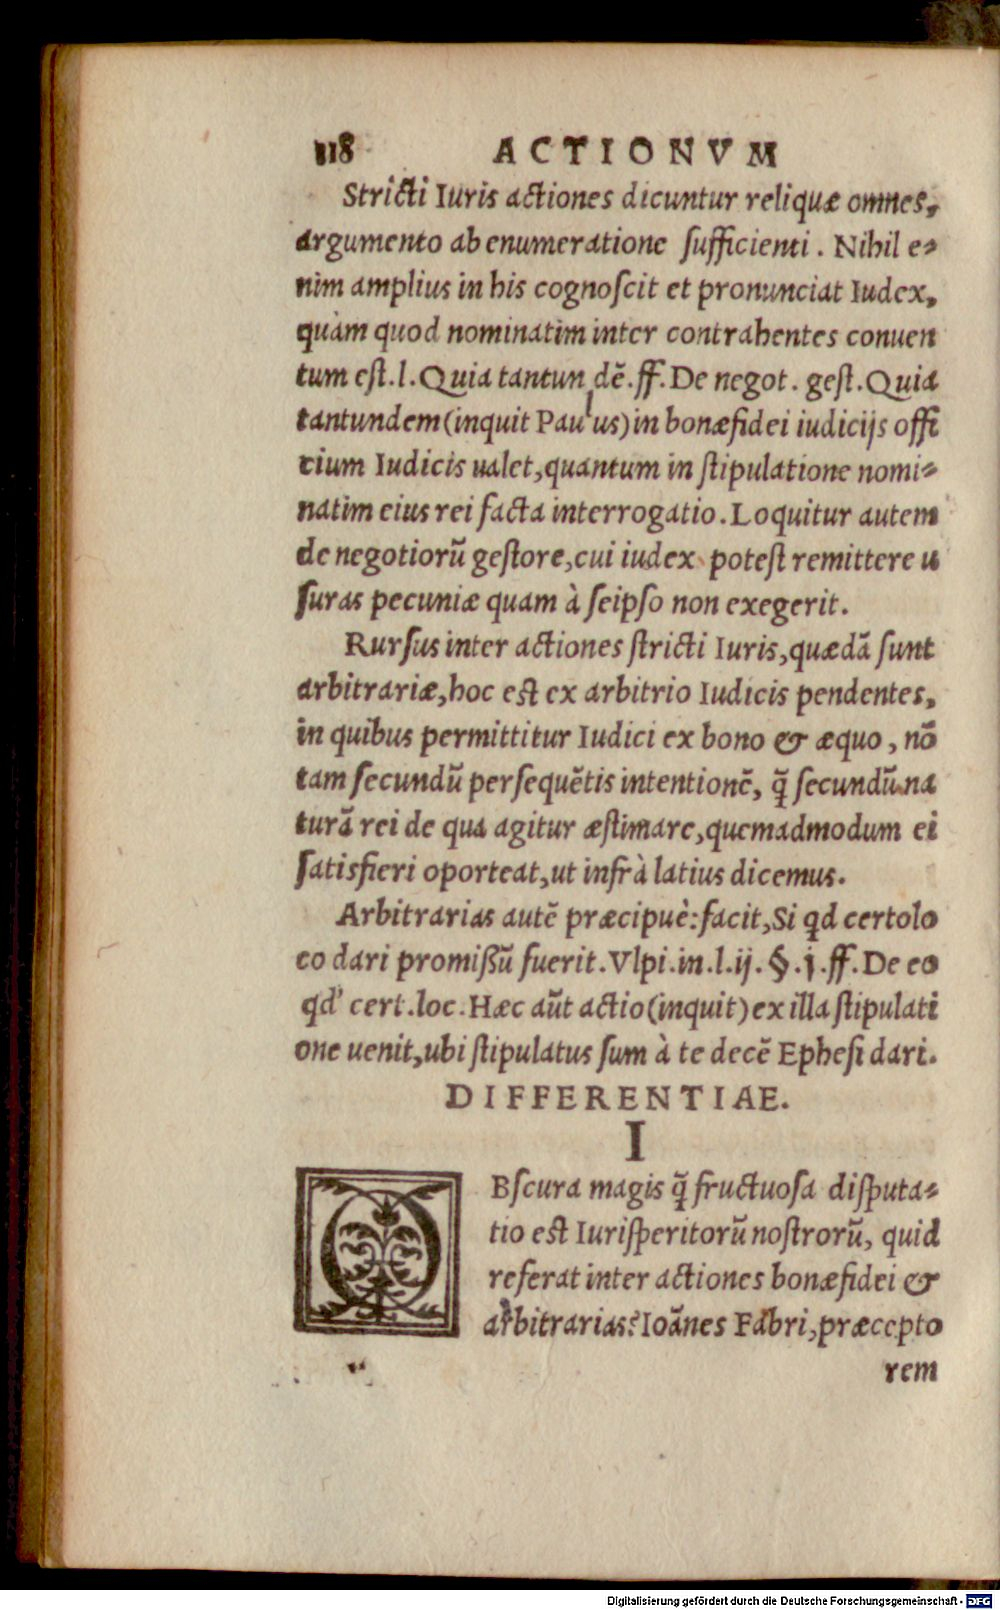 118 ACTIONVM
Stricti Iuris actiones dicuntur reliquæ omnes,
argumento ab enumeratione sufficienti. Nihil e-
nim amplius in his cognoscit et pronunciat Iudex,
quàm quod nominatim inter contrahentes conuen
tum est.l.Quia tantun dẽ.ff.De negot. gest.Quia
tantundem(inquit Paulus)in bonæfidei iudicijs offi
cium Iudicis ualet,quantum in stipulatione nomi-
natim eius rei facta interrogatio.Loquitur autem
de negotiorũ gestore,cui iudex potest remittere u
suras pecuniæ quam à seipso non exegerit.
Rursus inter actiones stricti Iuris,quædã sunt
arbitrariæ,hoc est ex arbitrio Iudicis pendentes,
in quibus permittitur Iudici ex bono & æquo, nõ
tam secundũ persequẽtis intentionẽ, q̃ secundũ na
turã rei de qua agitur æstimare,quemadmodum ei
satisfieri oporteat,ut infrà latius dicemus.
Arbitrarias autẽ præcipuè:facit,Si qd certolo
co dari promißũ fuerit.Vlpi.in.l.ij.§.j.ff.De eo
qd' cert.loc.Hæc aũt actio(inquit)ex illa stipulati
one uenit,ubi stipulatus sum à te decẽ Ephesi dari.
DIFFERENTIAE.
I
OBscura magis q̃ fructuosa disputa-
tio est Iurisperitorũ nostrorũ, quid
referat inter actiones bonæfidei &
arbitrarias? Ioãnes Fabri,præcepto
rem
Digitalisierung gefördert durch die Deutsche Forschungsgemeinschaft - DFG